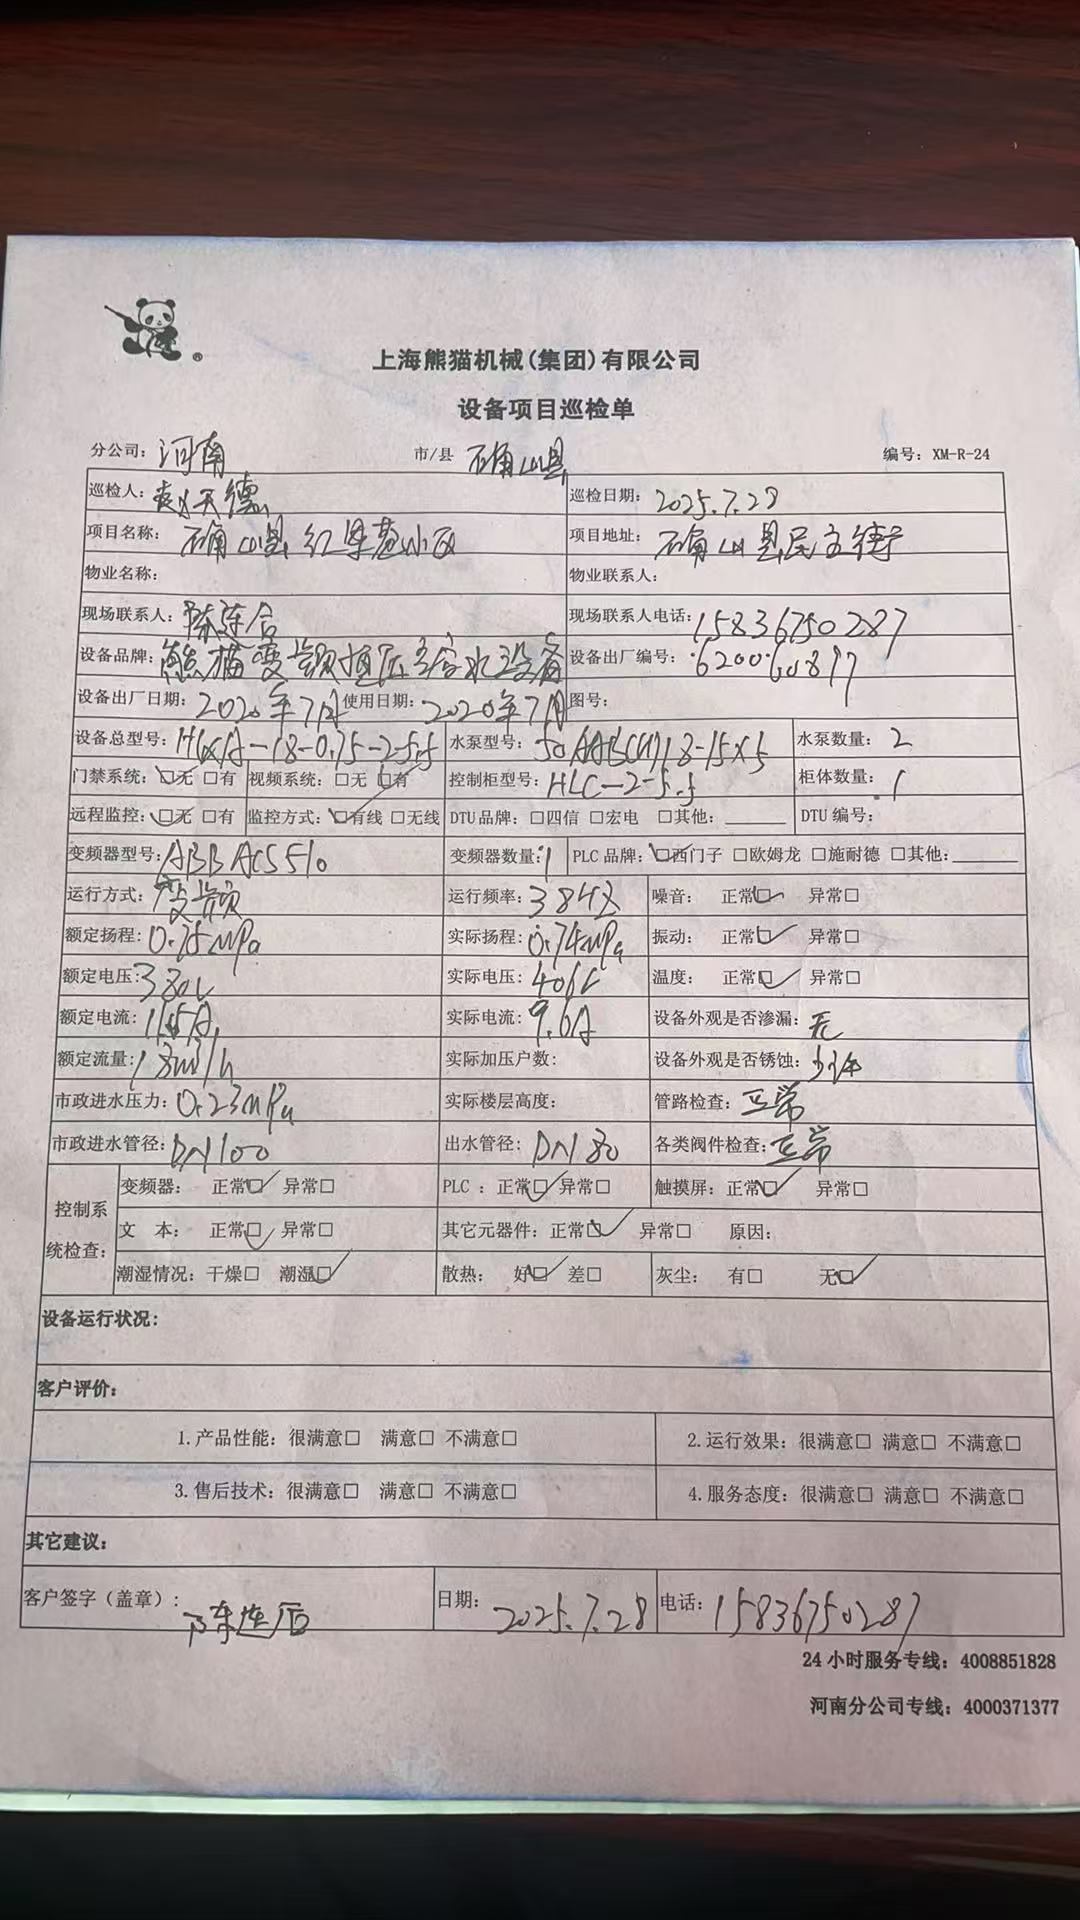 ®
上海熊猫机械(集团)有限公司
设备项目巡检单
分公司: 河南 市/县 确山县 编号: XM-R-24
巡检人: 赵天德 巡检日期: 2025.7.28
项目名称: 确山县红星苑小区 项目地址: 确山县民主街
物业名称: 物业联系人:
现场联系人: 陈 现场联系人电话: 15836750287
设备品牌: 熊猫变频恒压给水设备 设备出厂编号: 620060877
设备出厂日期: 2020年7月 使用日期: 2020年7月 图号:
设备总型号: -18-0.75-2-5.5 水泵型号: 50AABC(H)18-15×5 水泵数量: 2
门禁系统: ☑无 □有 视频系统: □无 ☑有 控制柜型号: HLC-2-5.5 柜体数量: 1
远程监控: ☑无 □有 监控方式: ☑有线 □无线 DTU品牌: □四信 □宏电 □其他: ______ DTU编号:
变频器型号: ABB ACS510 变频器数量: 1 PLC品牌: ☑西门子 □欧姆龙 □施耐德 □其他: ______
运行方式: 变频 运行频率: 38HZ 噪音: 正常☑ 异常□
额定扬程: 0.75MPa 实际扬程: 0.74MPa 振动: 正常☑ 异常□
额定电压: 380V 实际电压: 406V 温度: 正常☑ 异常□
额定电流: 11.5A 实际电流: 9.6A 设备外观是否渗漏: 无
额定流量: 18m³/h 实际加压户数: 设备外观是否锈蚀:
市政进水压力: 0.23MPa 实际楼层高度: 管路检查: 正常
市政进水管径: DN100 出水管径: DN80 各类阀件检查: 正常
控制系统检查: 变频器: 正常☑ 异常□ PLC: 正常☑ 异常□ 触摸屏: 正常☑ 异常□
文 本: 正常☑ 异常□ 其它元器件: 正常☑ 异常□ 原因:
潮湿情况: 干燥□ 潮湿☑ 散热: 好☑ 差□ 灰尘: 有□ 无☑
设备运行状况:
客户评价:
1.产品性能: 很满意□ 满意□ 不满意□ 2.运行效果: 很满意□ 满意□ 不满意□
3.售后技术: 很满意□ 满意□ 不满意□ 4.服务态度: 很满意□ 满意□ 不满意□
其它建议:
客户签字（盖章）: 陈连 日期: 2025.7.28 电话: 15836750287
24小时服务专线: 4008851828
河南分公司专线: 4000371377